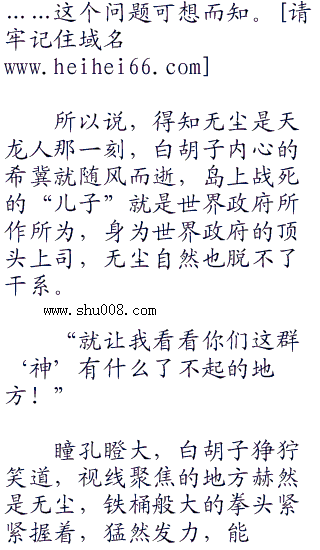 ……这个问题可想而知。[请
牢记住域名
www.heihei66.com]
所以说，得知无尘是天
龙人那一刻，白胡子内心的
希冀就随风而逝，岛上战死
的“儿子”就是世界政府所
作所为，身为世界政府的顶
头上司，无尘自然也脱不了
干系。
www.shu008.com
“就让我看看你们这群
‘神’有什么了不起的地
方！”
瞳孔瞪大，白胡子狰狞
笑道，视线聚焦的地方赫然
是无尘，铁桶般大的拳头紧
紧握着，猛然发力，能